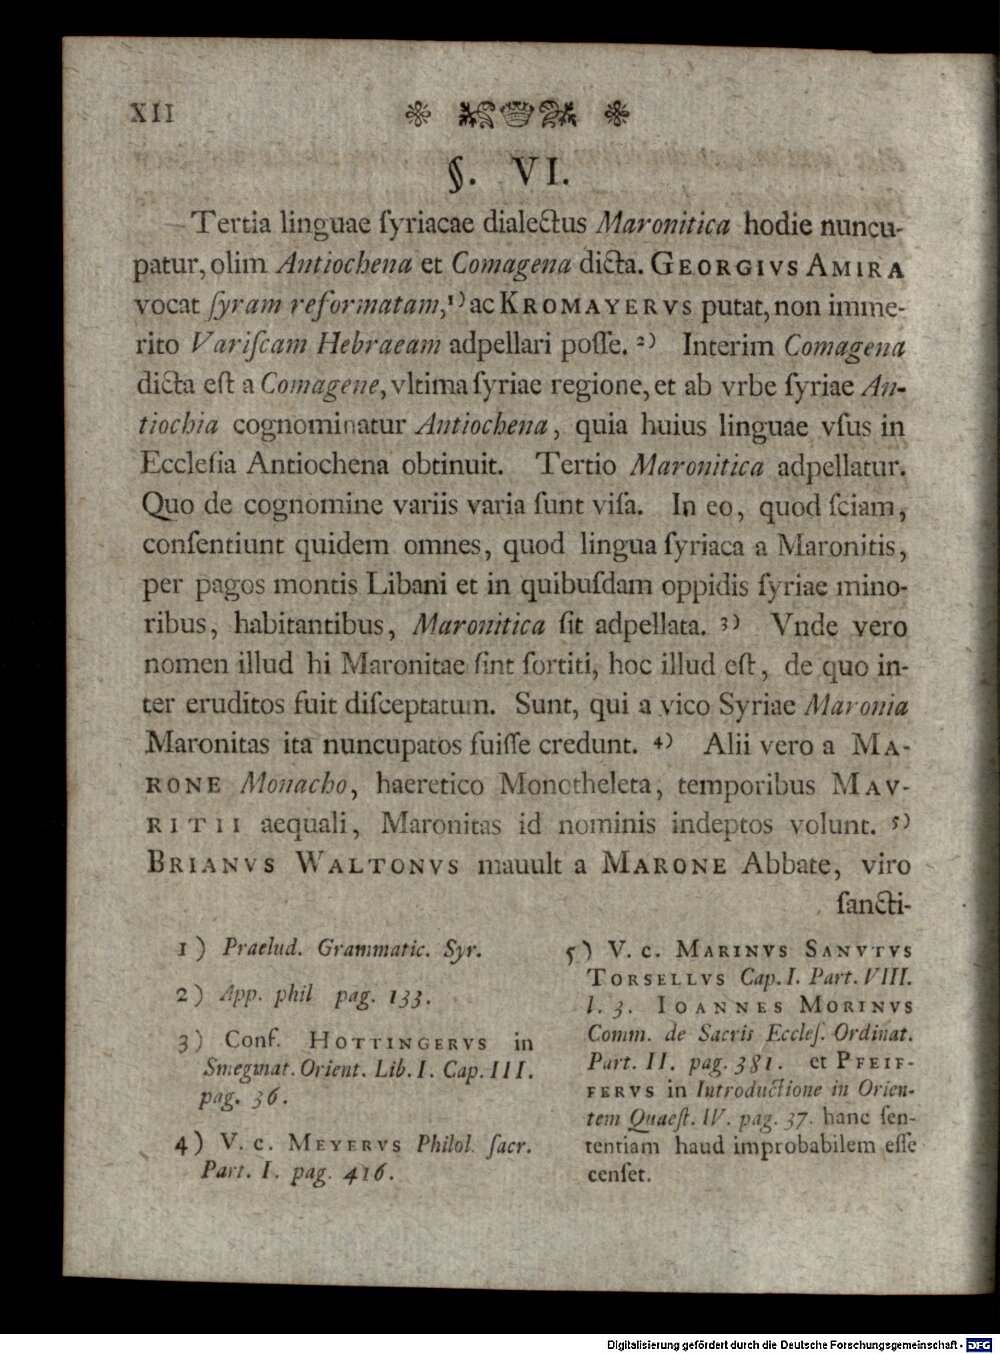 XII
§. VI.
Tertia linguae ſyriacae dialectus Maronitica hodie nuncu-
patur, olim Antiochena et Comagena dicta. GEORGIVS AMIRA
vocat ſyram reformatam,1) ac KROMAYERVS putat, non imme-
rito Variſcam Hebraeam adpellari poſſe. 2) Interim Comagena
dicta eſt a Comagene, vltima ſyriae regione, et ab vrbe ſyriae An-
tiochia cognominatur Antiochena, quia huius linguae vſus in
Eccleſia Antiochena obtinuit. Tertio Maronitica adpellatur.
Quo de cognomine variis varia ſunt viſa. In eo, quod ſciam,
conſentiunt quidem omnes, quod lingua ſyriaca a Maronitis,
per pagos montis Libani et in quibuſdam oppidis ſyriae mino-
ribus, habitantibus, Maronitica ſit adpellata. 3) Vnde vero
nomen illud hi Maronitae ſint ſortiti, hoc illud eſt, de quo in-
ter eruditos fuit diſceptatum. Sunt, qui a vico Syriae Maronia
Maronitas ita nuncupatos fuiſſe credunt. 4) Alii vero a MA-
RONE Monacho, haeretico Monotheleta, temporibus MAV-
RITII aequali, Maronitas id nominis indeptos volunt. 5)
BRIANVS WALTONVS mauult a MARONE Abbate, viro
ſancti-
1) Praelud. Grammatic. Syr.
2) App. phil pag. 133.
3) Conf. HOTTINGERVS in
Smegmat. Orient. Lib. I. Cap. III.
pag. 36.
4) V. c. MEYERVS Philol. ſacr.
Part. I. pag. 416.
5) V. c. MARINVS SANVTVS
TORSELLVS Cap. I. Part. VIII.
l. 3. IOANNES MORINVS
Comm. de Sacris Eccleſ. Ordinat.
Part. II. pag. 381. et PFEIF-
FERVS in Introductione in Orien-
tem Quaeſt. IV. pag. 37. hanc ſen-
tentiam haud improbabilem eſſe
cenſet.
Digitalisierung gefördert durch die Deutsche Forschungsgemeinschaft - DFG